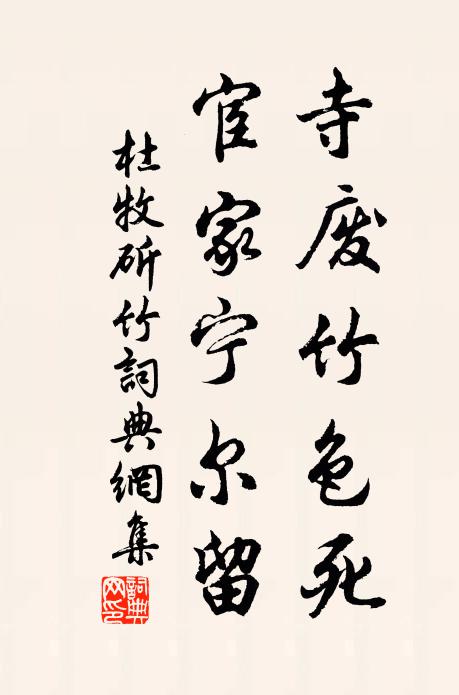 寺废竹色死
宦家宁尔留
杜牧斫竹詞典網集
詞典网印